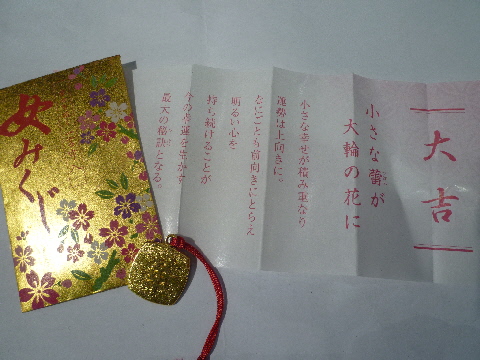 大吉
小さな蕾が
大輪の花に
小さな幸せが積み重なり
運勢は上向きに。
なにごとも前向きにとらえ
明るい心を
持ち続けることが
今の幸運を生かす
最大の秘訣となる。
女みくじ